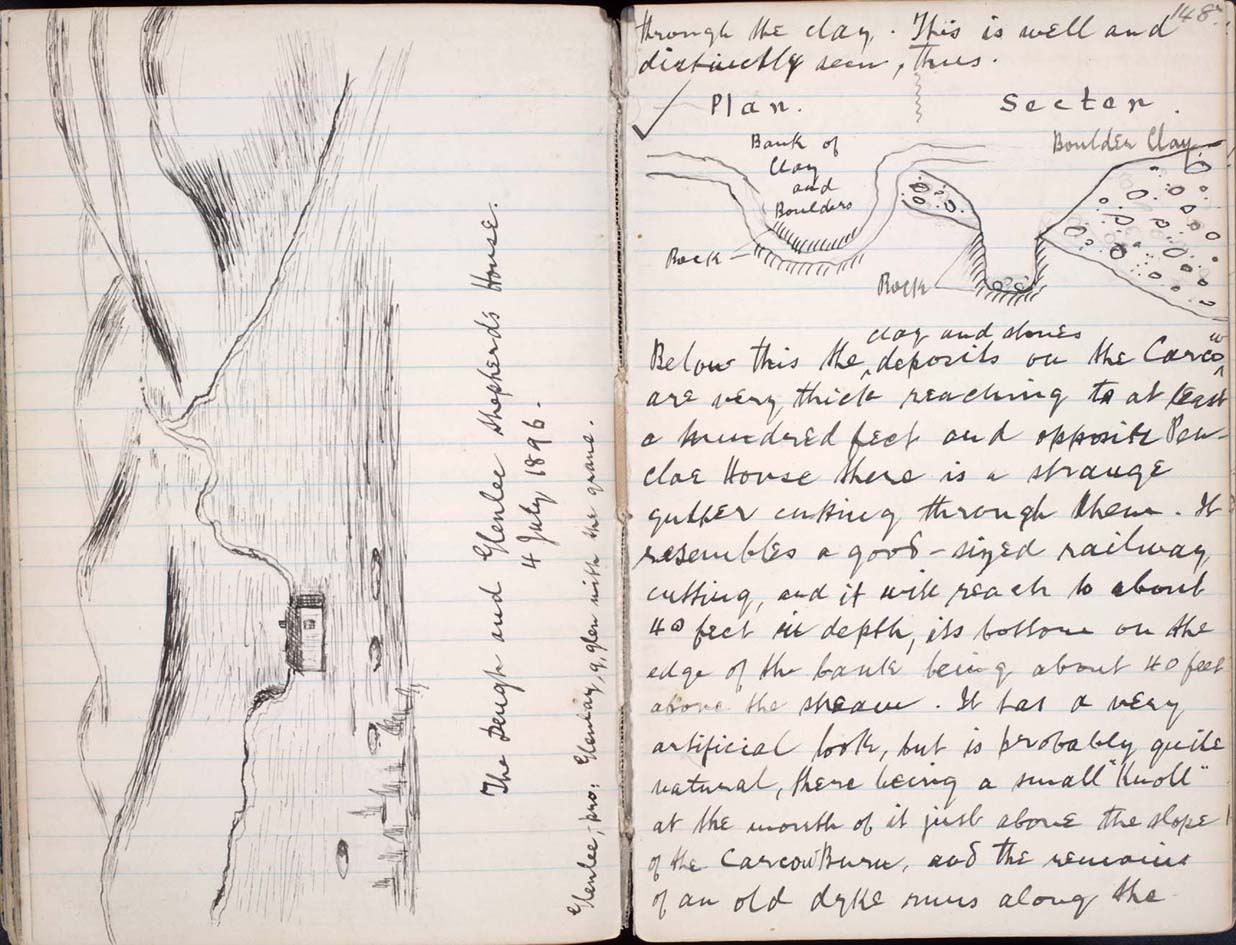 The Deugh and Glenlee Shepherds House.
4 July 1896.
Glenlee, pro: Glenlay, q. glen with the grave.
148
through the clay. This is well and
distinctly seen, thus.
Plan.
Secton.
Bank of
Clay
and
Boulders
Boulder Clay
Rock
Rock
clay and stones
Below this the deposits on the Carcow
are very thick reaching to at least
a hundred feet and opposite Pen-
cloe House there is a strange
gutter cutting through them. It
resembles a good-sized railway
cutting, and it will reach to about
40 feet in depth, its bottom on the
edge of the bank being about 40 feet
above the stream. It has a very
artificial look, but is probably quite
natural, there being a small "Knoll"
at the mouth of it just above the slope
of the Carcow Burn, and the remains
of an old dyke runs along the